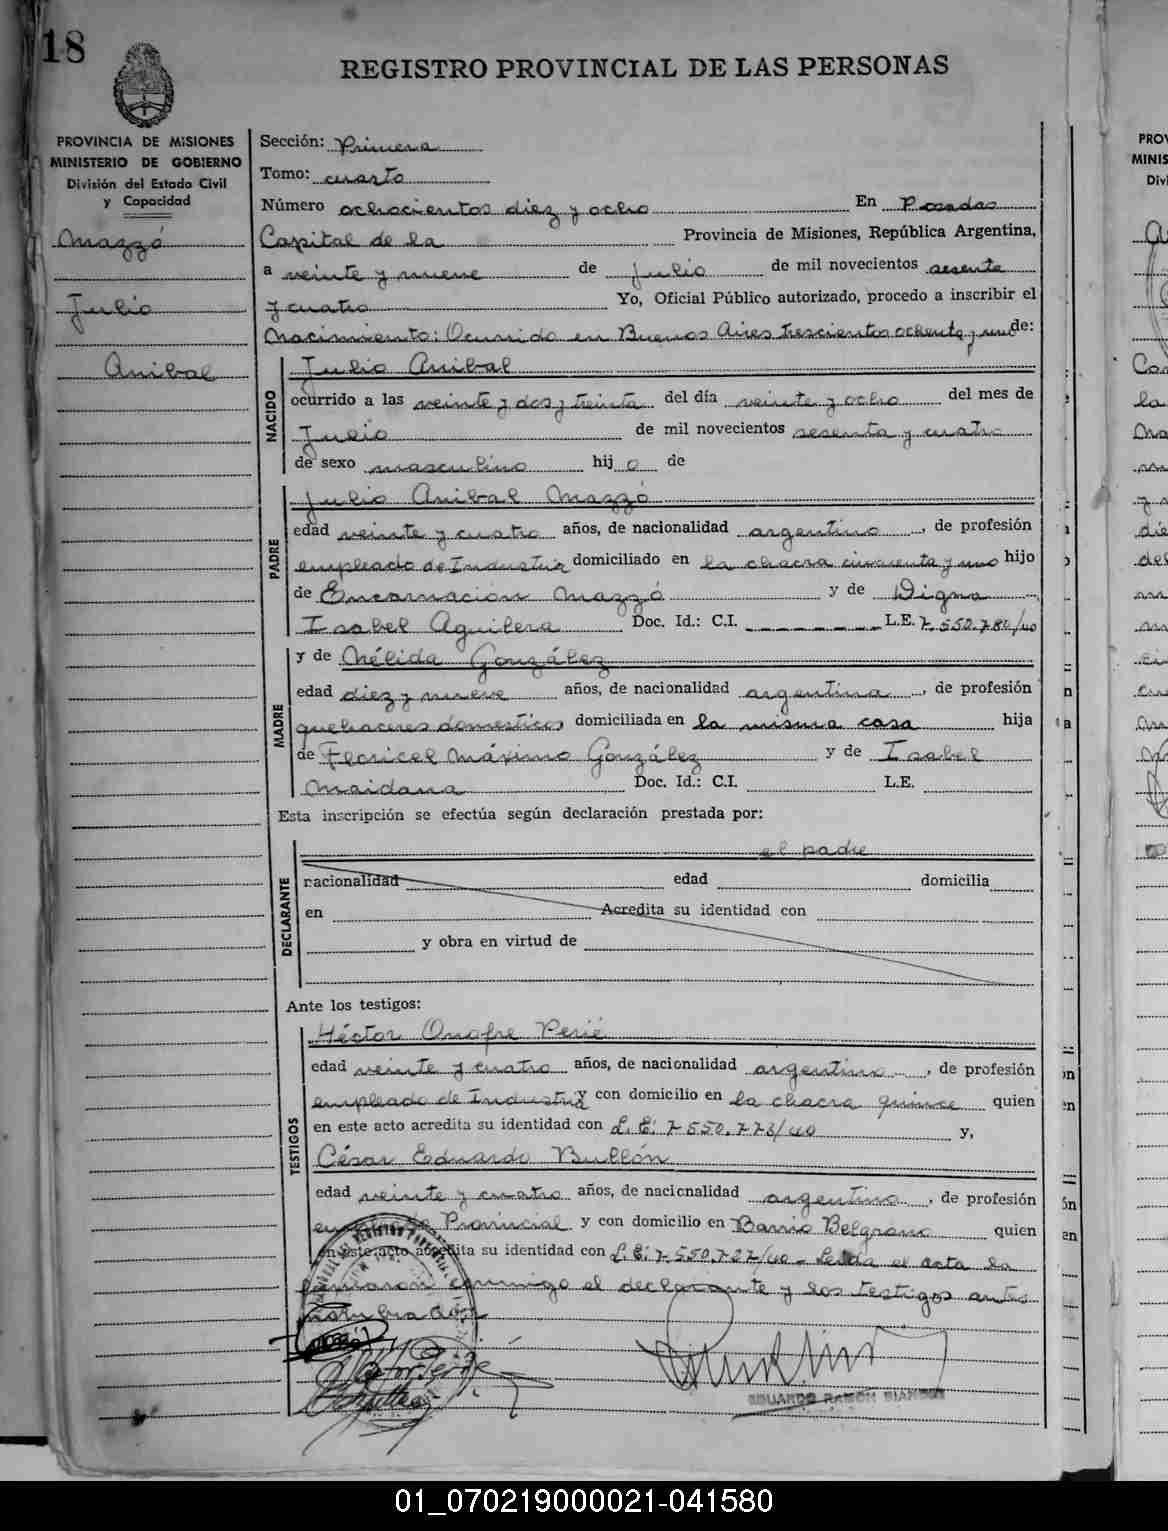 18
REGISTRO PROVINCIAL DE LAS PERSONAS
PROVINCIA DE MISIONES
MINISTERIO DE GOBIERNO
División del Estado Civil
y Capacidad
Mazzó
Julio
Anibal
Sección: Primera
Tomo: cuarto
Número ochocientos diez y ocho En Posadas
Capital de la Provincia de Misiones, República Argentina,
a veinte y nueve de Julio de mil novecientos sesenta
y cuatro Yo, Oficial Público autorizado, procedo a inscribir el
Nacimiento: Ocurrido en Buenos Aires trescientos ochenta y uno de:
NACIDO
Julio Anibal
ocurrido a las veinte y dos y treinta del día veinte y ocho del mes de
Julio de mil novecientos sesenta y cuatro
de sexo masculino hijo de
PADRE
Julio Anibal Mazzó
edad veinte y cuatro años, de nacionalidad argentino, de profesión
empleado de Industria domiciliado en la chacra cincuenta y uno hijo
de Encarnación Mazzó y de Digna
Isabel Aguilera Doc. Id.: C.I. L.E. 7.550.780/40
MADRE
y de Nélida González
edad diez y nueve años, de nacionalidad argentina, de profesión
quehaceres domesticos domiciliada en la misma casa hija
de Floricel Máximo González y de Isabel
Maidana Doc. Id.: C.I. L.E.
Esta inscripción se efectúa según declaración prestada por:
el padre
DECLARANTE
nacionalidad edad domicilia
en Acredita su identidad con
y obra en virtud de
Ante los testigos:
TESTIGOS
Héctor Onofre Perié
edad veinte y cuatro años, de nacionalidad argentino, de profesión
empleado de Industria y con domicilio en la chacra quince quien
en este acto acredita su identidad con L.E: 7.550.773/40 y,
César Eduardo Bullón
edad veinte y cuatro años, de nacionalidad argentino, de profesión
empleado Provincial y con domicilio en Barrio Belgrano quien
en este acto acredita su identidad con L.E: 7.550.727/40 - Leida el acta la
firmaron conmigo el declarante y los testigos antes
nombrados
EDUARDO RAMÓN
01_070219000021-041580